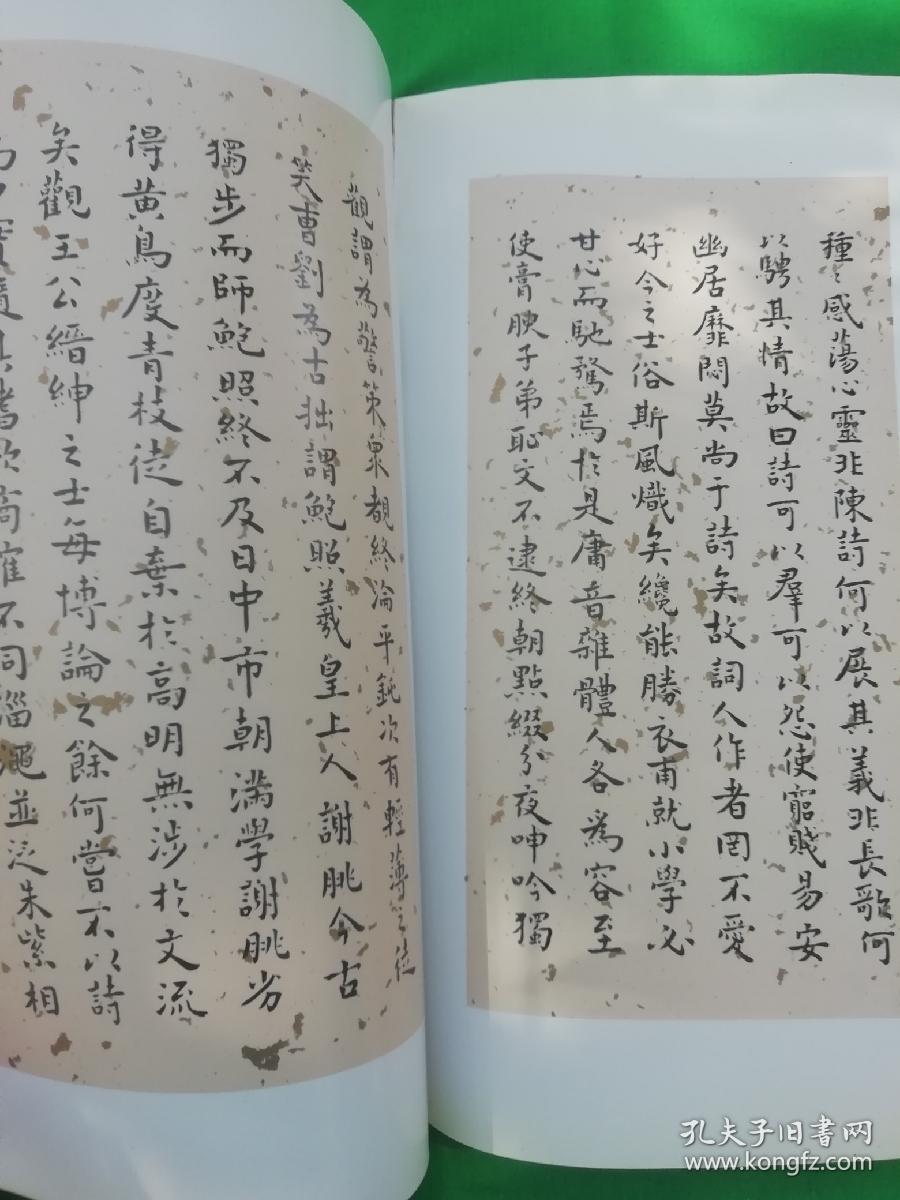 種〻感蕩心靈非陳詩何以展其義非長歌何
以騁其情故曰詩可以羣可以怨使窮賤易安
幽居靡悶莫尚于詩矣故詞人作者罔不愛
好今之士俗斯風熾矣纔能勝衣甫就小學必
甘心而馳騖焉於是庸音雜體人各爲容至
使膏腴子弟恥文不逮終朝點綴分夜呻吟獨
觀謂為警策衆覩終淪平鈍次有輕薄之徒
笑曹劉為古拙謂鮑照羲皇上人謝朓今古
獨步而師鮑照終不及日中市朝滿學謝朓劣
得黄鳥度青枝徒自棄於高明無涉於文流
矣觀王公縉紳之士每博論之餘何嘗不以詩
嗜欲商搉不同淄澠並泛朱紫相
孔夫子旧书网
www.kongfz.com